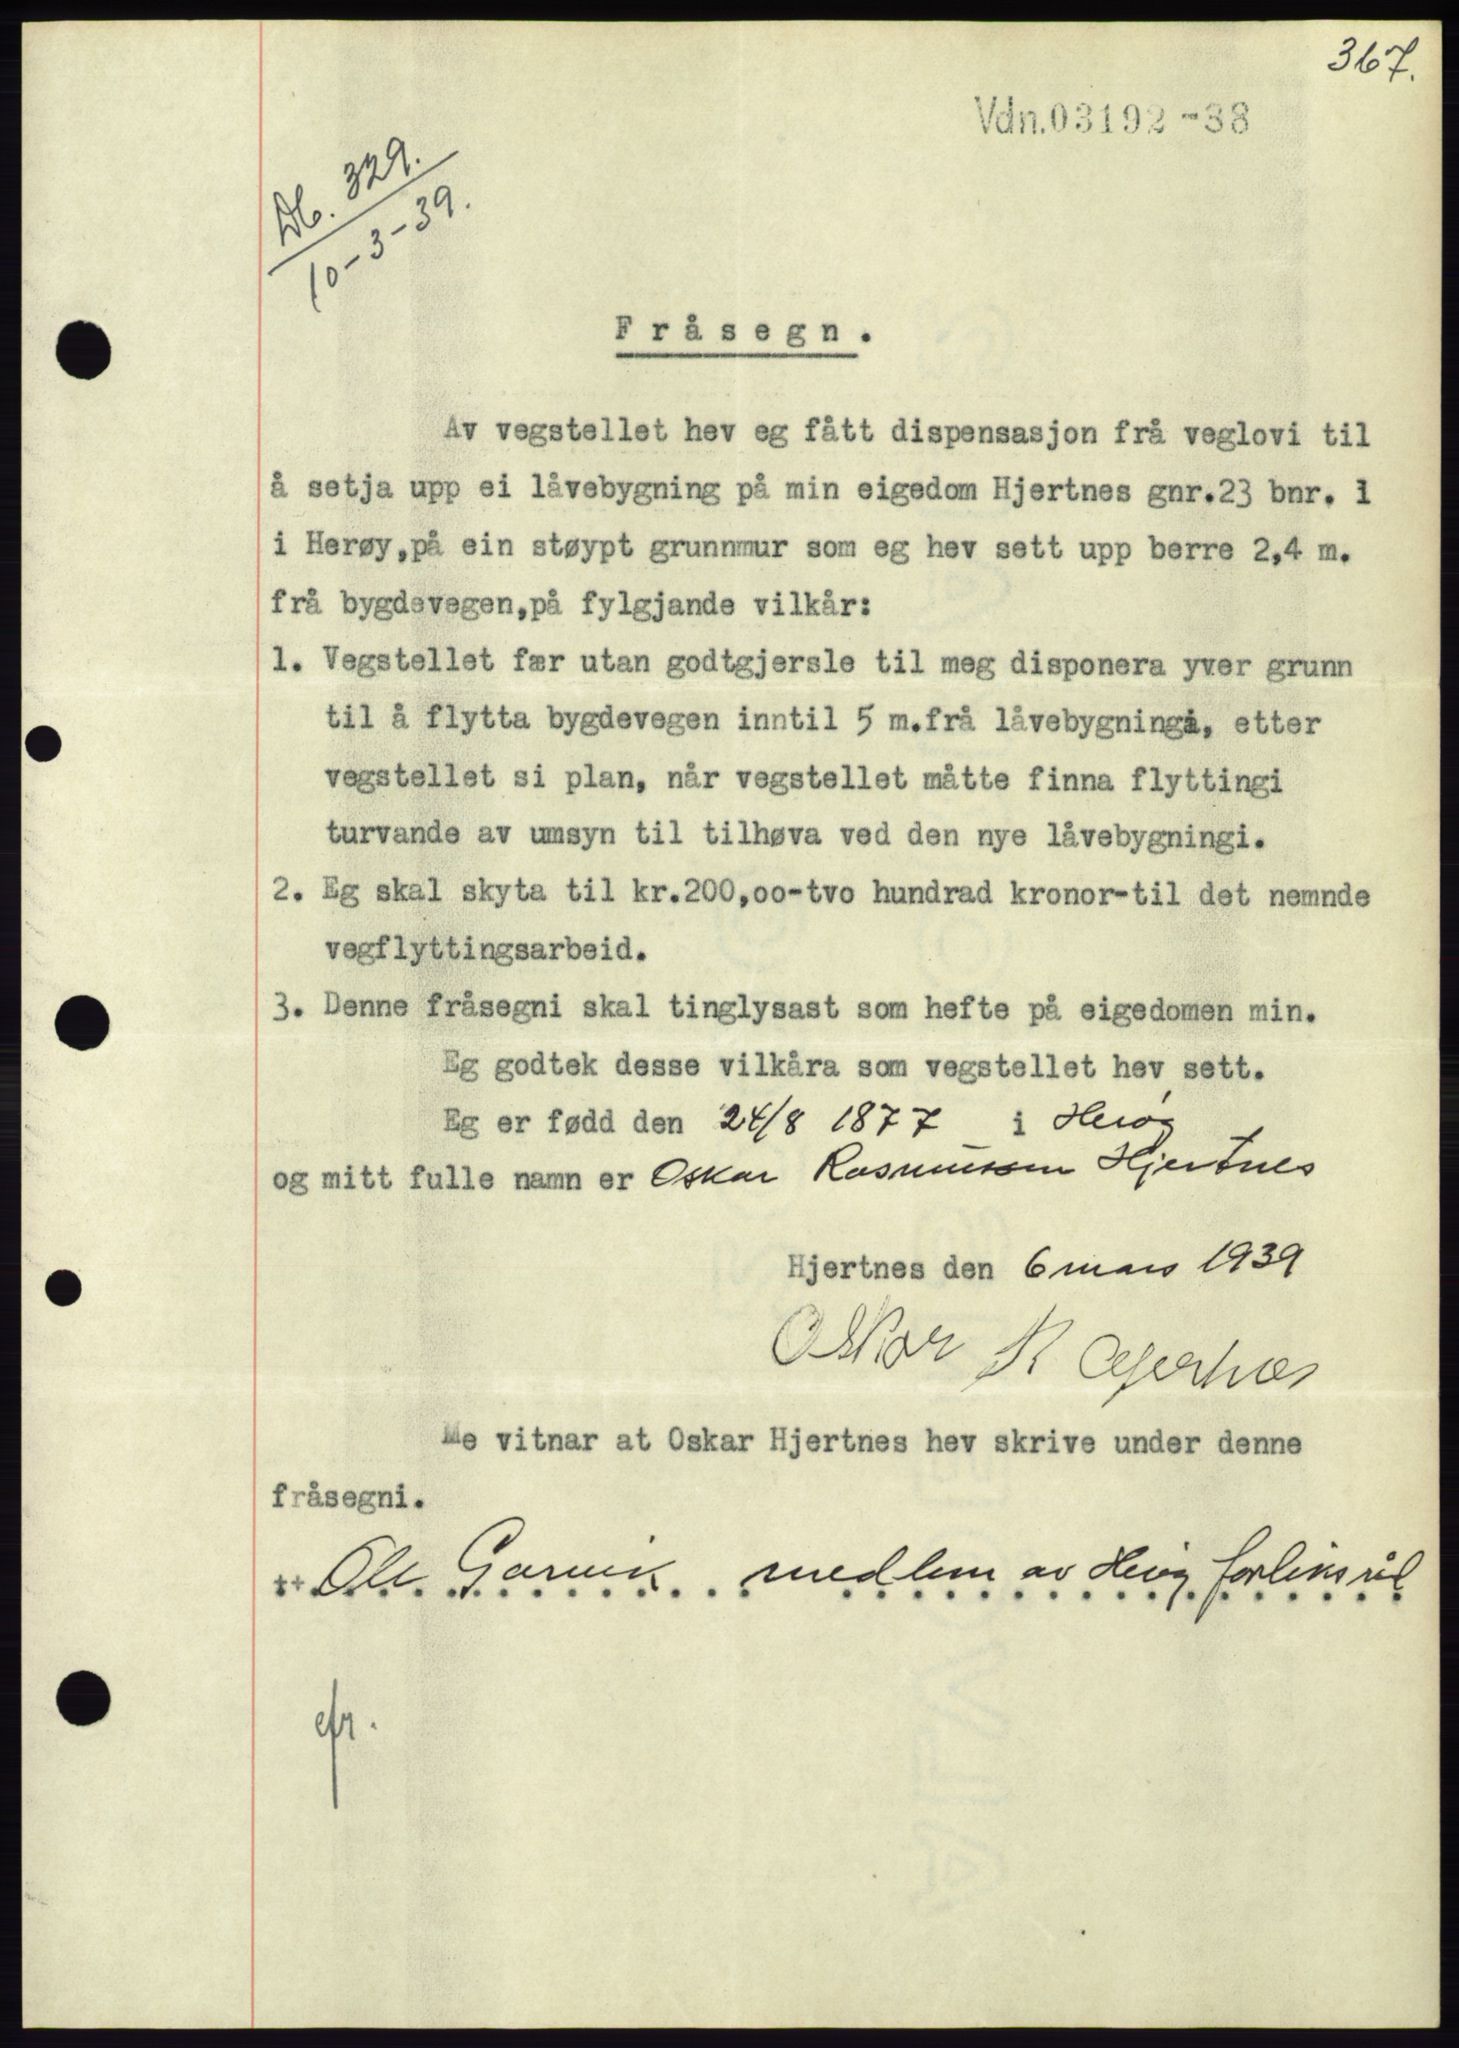 367.
Vdn.03192-38
Db. 329.
10-3-39.
Fråsegn.
Av vegstellet hev eg fått dispensasjon frå veglovi til
å setja upp ei låvebygning på min eigedom Hjertnes gnr.23 bnr. 1
i Herøy,på ein støypt grunnmur som eg hev sett upp berre 2,4 m.
frå bygdevegen,på fylgjande vilkår:
1. Vegstellet fær utan godtgjersle til meg disponera yver grunn
til å flytta bygdevegen inntil 5 m.frå låvebygningi, etter
vegstellet si plan, når vegstellet måtte finna flyttingi
turvande av umsyn til tilhøva ved den nye låvebygningi.
2. Eg skal skyta til kr.200,oo-tvo hundrad kronor-til det nemnde
vegflyttingsarbeid.
3. Denne fråsegni skal tinglysast som hefte på eigedomen min.
Eg godtek desse vilkåra som vegstellet hev sett.
Eg er fødd den 24/8 1877 i Herøy
og mitt fulle namn er Oskar Rasmussen Hjertnes
Hjertnes den 6 mars 1939
Oskar R Hjertnes
Me vitnar at Oskar Hjertnes hev skrive under denne
fråsegni.
Ole Garvik medlem av Herøy forliksråd